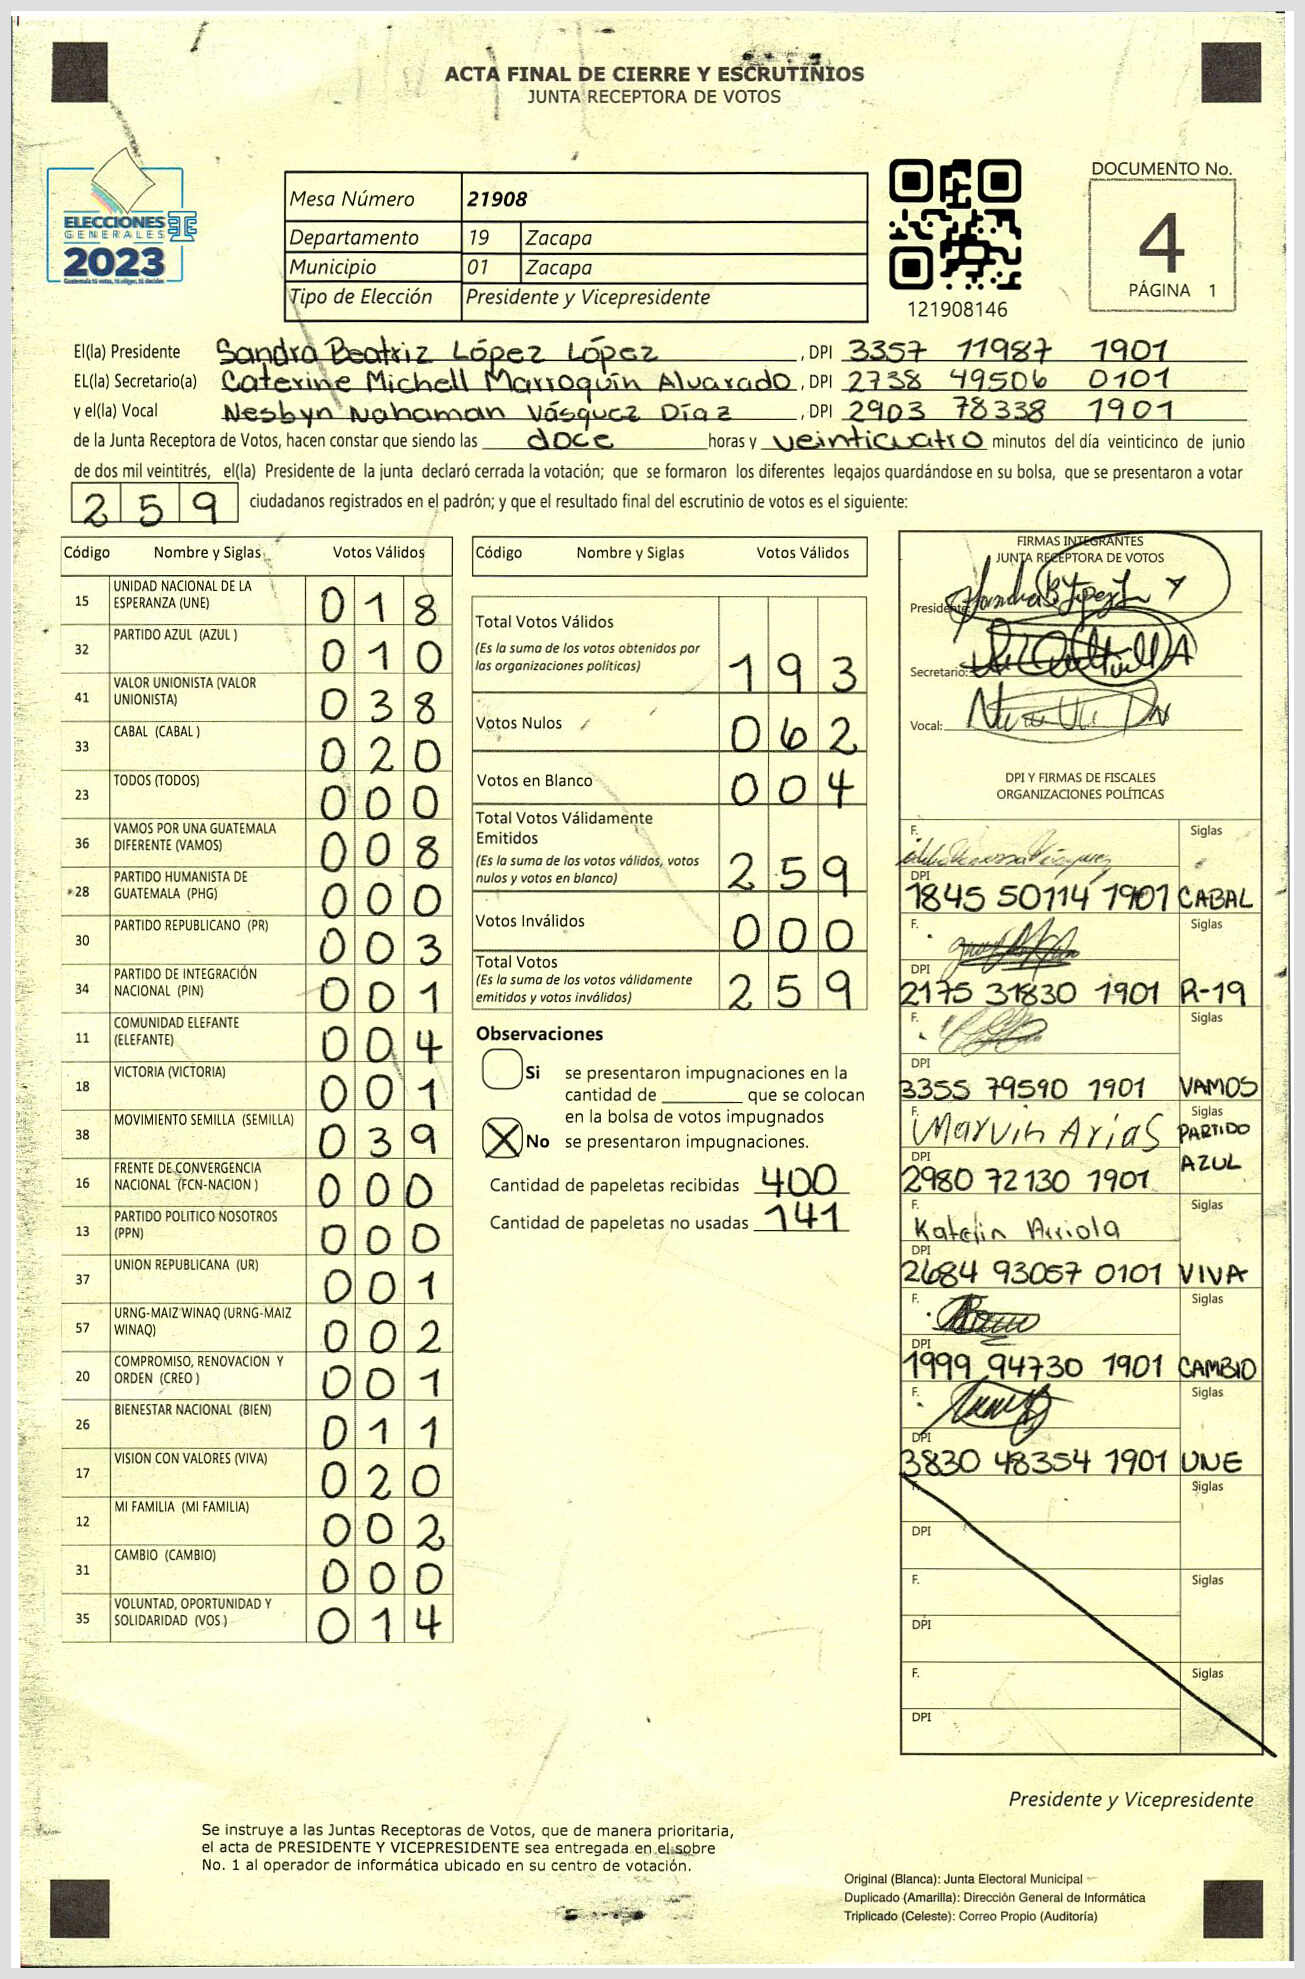 ACTA FINAL DE CIERRE Y ESCRUTINIOS
JUNTA RECEPTORA DE VOTOS
ELECCIONES
GENERALES
2023
Mesa Número 21908
Departamento 19 Zacapa
Municipio 01 Zacapa
Tipo de Elección Presidente y Vicepresidente
121908146
DOCUMENTO No.
4
PÁGINA 1
El(la) Presidente Sandra Beatriz López López, DPI 3357 11987 1901
EL(la) Secretario(a) Caterine Michell Marroquín Alvarado, DPI 2738 49506 0101
y el(la) Vocal Nesbyn Nahaman Vásquez Díaz, DPI 2903 78338 1901
de la Junta Receptora de Votos, hacen constar que siendo las doce horas y veinticuatro minutos del día veinticinco de junio
de dos mil veintitrés, el(la) Presidente de la junta declaró cerrada la votación; que se formaron los diferentes legajos guardándose en su bolsa, que se presentaron a votar
259 ciudadanos registrados en el padrón; y que el resultado final del escrutinio de votos es el siguiente:
Código Nombre y Siglas Votos Válidos
15 UNIDAD NACIONAL DE LA ESPERANZA (UNE) 018
32 PARTIDO AZUL (AZUL ) 010
41 VALOR UNIONISTA (VALOR UNIONISTA) 038
33 CABAL (CABAL ) 020
23 TODOS (TODOS) 000
36 VAMOS POR UNA GUATEMALA DIFERENTE (VAMOS) 008
28 PARTIDO HUMANISTA DE GUATEMALA (PHG) 000
30 PARTIDO REPUBLICANO (PR) 003
34 PARTIDO DE INTEGRACIÓN NACIONAL (PIN) 001
11 COMUNIDAD ELEFANTE (ELEFANTE) 004
18 VICTORIA (VICTORIA) 001
38 MOVIMIENTO SEMILLA (SEMILLA) 039
16 FRENTE DE CONVERGENCIA NACIONAL (FCN-NACION ) 000
13 PARTIDO POLITICO NOSOTROS (PPN) 000
37 UNION REPUBLICANA (UR) 001
57 URNG-MAIZ WINAQ (URNG-MAIZ WINAQ) 002
20 COMPROMISO, RENOVACION Y ORDEN (CREO ) 001
26 BIENESTAR NACIONAL (BIEN) 011
17 VISION CON VALORES (VIVA) 020
12 MI FAMILIA (MI FAMILIA) 002
31 CAMBIO (CAMBIO) 000
35 VOLUNTAD, OPORTUNIDAD Y SOLIDARIDAD (VOS ) 014
Código Nombre y Siglas Votos Válidos
Total Votos Válidos
(Es la suma de los votos obtenidos por
las organizaciones políticas) 193
Votos Nulos 062
Votos en Blanco 004
Total Votos Válidamente
Emitidos
(Es la suma de los votos válidos, votos
nulos y votos en blanco) 259
Votos Inválidos 000
Total Votos
(Es la suma de los votos válidamente
emitidos y votos inválidos) 259
Observaciones
Si se presentaron impugnaciones en la
cantidad de ________ que se colocan
en la bolsa de votos impugnados
X No se presentaron impugnaciones.
Cantidad de papeletas recibidas 400
Cantidad de papeletas no usadas 141
FIRMAS INTEGRANTES
JUNTA RECEPTORA DE VOTOS
Presidente:
Secretario:
Vocal:
DPI Y FIRMAS DE FISCALES
ORGANIZACIONES POLÍTICAS
F. Siglas
DPI
1845 50114 1901 CABAL
F. Siglas
DPI
2175 31830 1901 R-19
F. Siglas
DPI
3355 79590 1901 VAMOS
F. Marvin Arias Siglas PARTIDO
DPI AZUL
2980 72130 1901
F. Siglas
Katelin Arriola
DPI
2684 93057 0101 VIVA
F. Siglas
DPI
1999 94730 1901 CAMBIO
F. Siglas
DPI
3830 48354 1901 UNE
F. Siglas
DPI
F. Siglas
DPI
F. Siglas
DPI
Presidente y Vicepresidente
Se instruye a las Juntas Receptoras de Votos, que de manera prioritaria,
el acta de PRESIDENTE Y VICEPRESIDENTE sea entregada en el sobre
No. 1 al operador de informática ubicado en su centro de votación.
Original (Blanca): Junta Electoral Municipal
Duplicado (Amarilla): Dirección General de Informática
Triplicado (Celeste): Correo Propio (Auditoría)